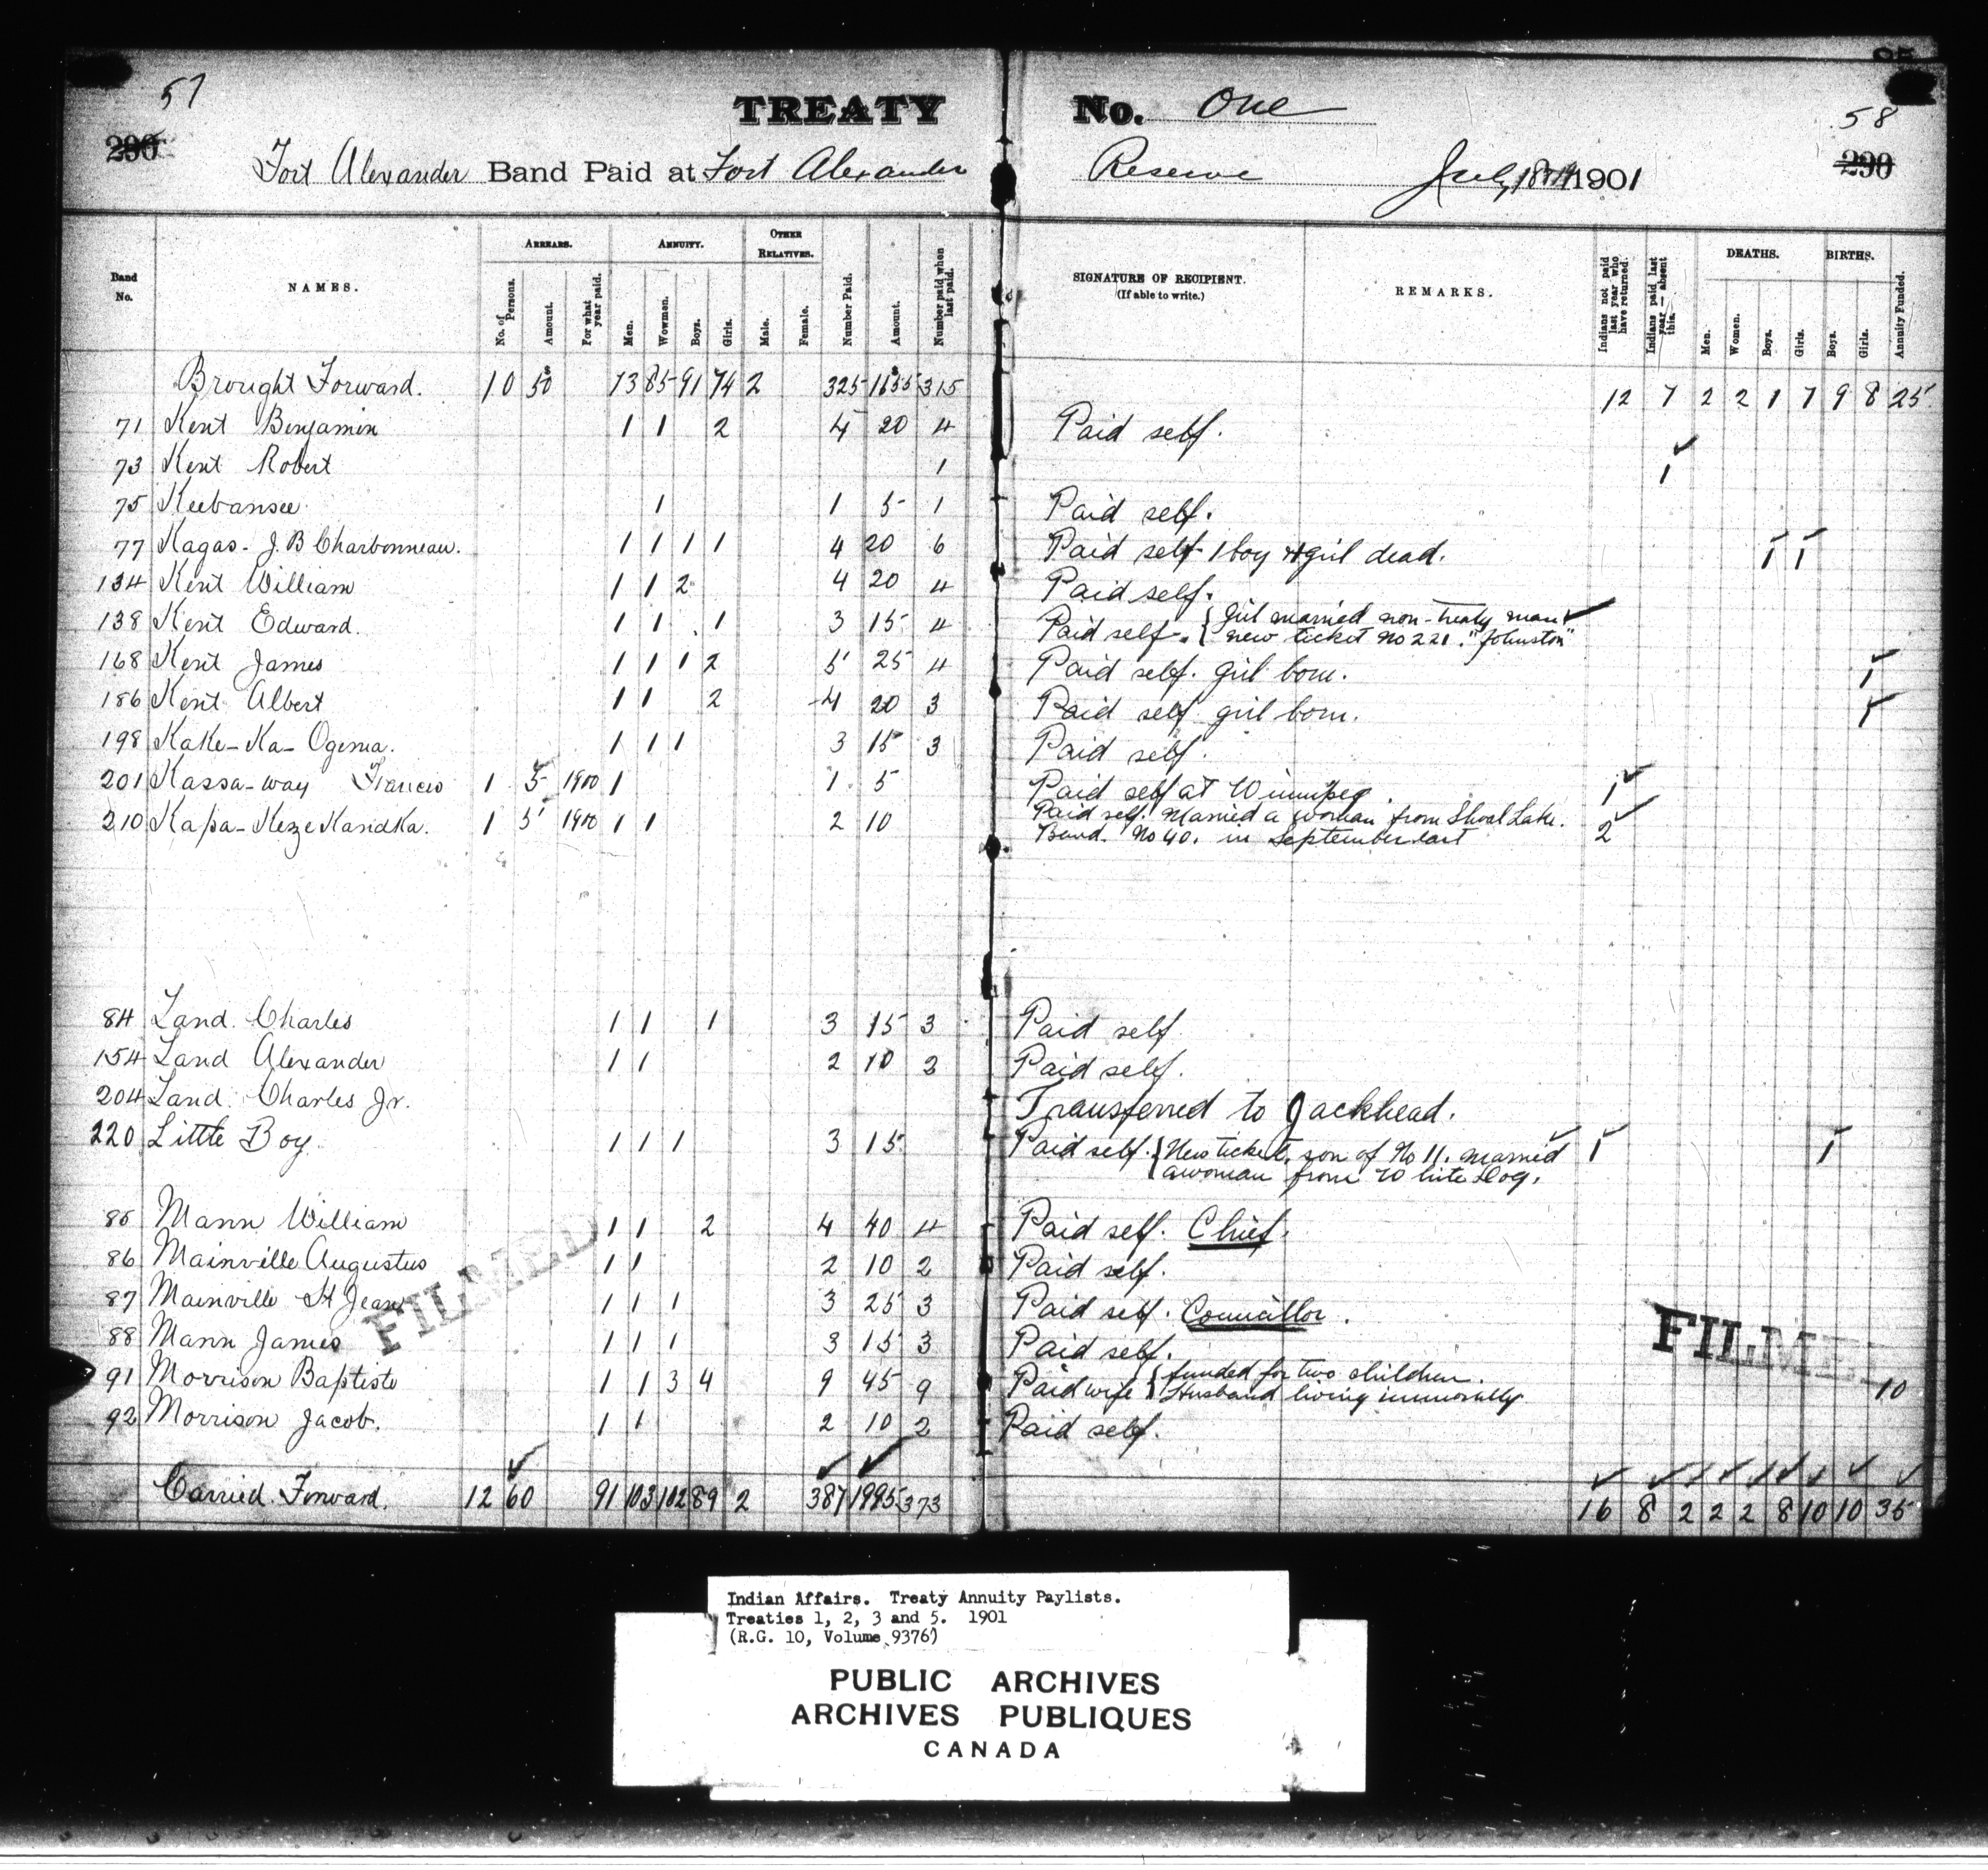 57
TREATY No. One
58
290
290
Fort Alexander Band Paid at Fort Alexander Reserve July 1901
Band No. NAMES. ARREARS. No. of Persons. Amount. For what year paid. ANNUITY. Men. Wowmen. Boys. Girls. OTHER RELATIVES. Male. Female. Number Paid. Amount. Number paid when last paid. SIGNATURE OF RECIPIENT. (If able to write.) REMARKS. Indians not paid last year who have returned. Indians paid last year — absent this. DEATHS. Men. Women. Boys. Girls. BIRTHS. Boys. Girls. Annuity Funded.
Brought Forward. 10 50 73 85 91 74 2 325 1655 315 12 7 2 2 1 7 9 8 25
71 Kent Benjamin 1 1 2 4 20 4 Paid self.
73 Kent Robert 1 1
75 Keebansee 1 1 5 1 Paid self.
77 Kagas- J. B Charbonneau. 1 1 1 1 4 20 6 Paid self- 1 boy & girl dead. 1 1
134 Kent William 1 1 2 4 20 4 Paid self.
138 Kent Edward. 1 1 1 3 15 4 Paid self. { Girl married non-treaty man
new ticket No 221. "Johnston"
168 Kent James 1 1 1 2 5 25 4 Paid self. girl born. 1
186 Kent Albert 1 1 2 4 20 3 Paid self girl born. 1
198 Kake-Ka-Ogema. 1 1 1 3 15 3 Paid self.
201 Kassa-way Francis 1 5 1900 1 1 5 Paid self at Winnipeg. 1
210 Kapa-KezeKandKa. 1 5 1900 1 1 2 10 Paid self. Married a woman from Shoal Lake. 2
Band. No 40. in September last
84 Land. Charles 1 1 1 3 15 3 Paid self
154 Land Alexander 1 1 2 10 2 Paid self.
204 Land. Charles Jr. Transferred to Jackhead.
220 Little Boy. 1 1 1 3 15 Paid self. { New ticket, son of No 11. married 1 1
a woman from White Dog.
85 Mann William 1 1 2 4 40 4 Paid self. Chief.
86 Mainville Augustus 1 1 2 10 2 Paid self.
87 Mainville St Jean 1 1 1 3 25 3 Paid self. Councillor.
88 Mann James 1 1 1 3 15 3 Paid self.
91 Morrison Baptiste 1 1 3 4 9 45 9 Paid wife { funded for two children. 10
Husband living immorally
92 Morrison Jacob. 1 1 2 10 2 Paid self.
FILMED
FILME
Carried Forward. 12 60 91 103 102 89 2 387 1995 373 16 8 2 2 2 8 10 10 35
Indian Affairs. Treaty Annuity Paylists.
Treaties 1, 2, 3 and 5. 1901
(R.G. 10, Volume 9376)
PUBLIC ARCHIVES
ARCHIVES PUBLIQUES
CANADA